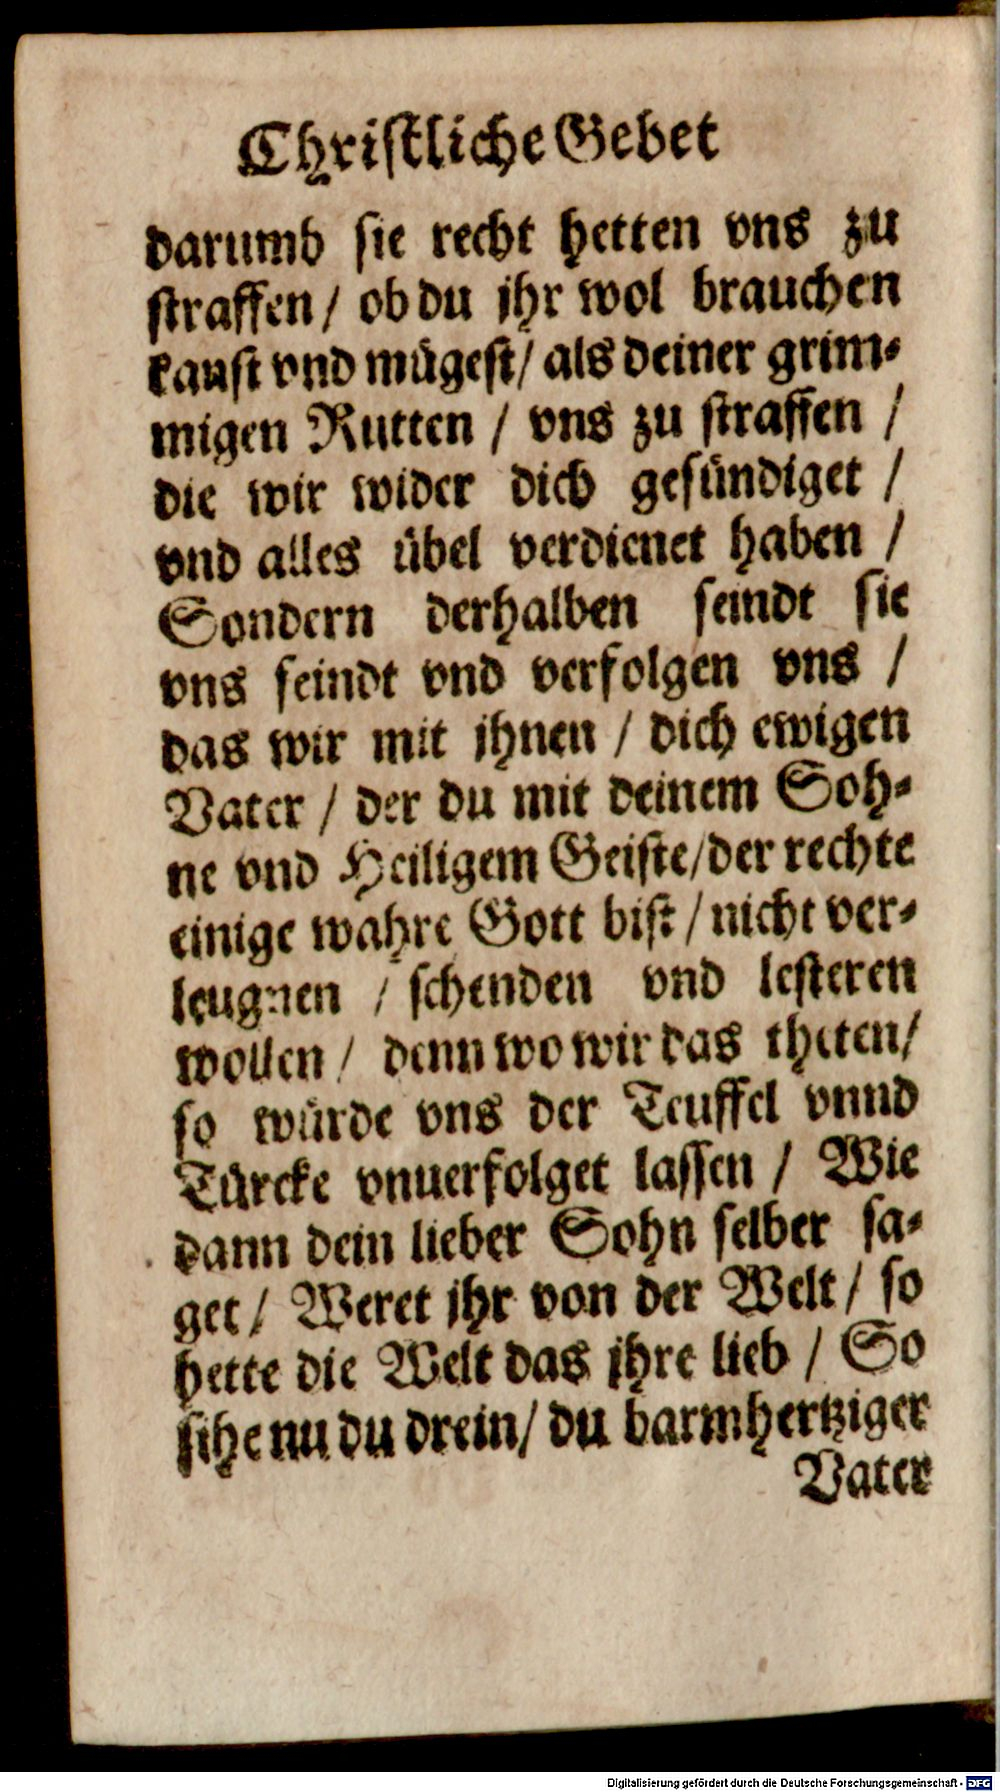 Christliche Gebet
darumb sie recht hetten vns zu
straffen / ob du jhr wol brauchen
kanst vnd mügest / als deiner grim⸗
migen Rutten / vns zu straffen /
die wir wider dich gesündiget /
vnd alles übel verdienet haben /
Sondern derhalben seindt sie
vns feindt vnd verfolgen vns /
das wir mit jhnen / dich ewigen
Vater / der du mit deinem Soh⸗
ne vnd Heiligem Geiste / der rechte
einige wahre Gott bist / nicht ver⸗
leugnen / schenden vnd lesteren
wollen / denn wo wir das theten /
so würde vns der Teuffel vnnd
Türcke vnuerfolget lassen / Wie
dann dein lieber Sohn selber sa⸗
get / Weret jhr von der Welt / so
hette die Welt das jhre lieb / So
sihe nu du drein / du barmhertziger
Vater
Digitalisierung gefördert durch die Deutsche Forschungsgemeinschaft - DFG